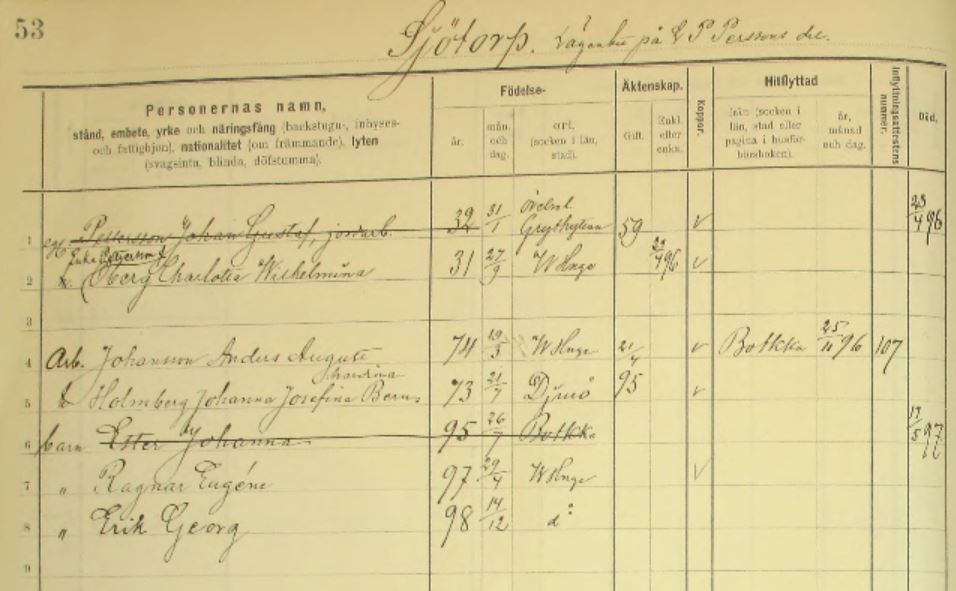 53
Sjötorp. Lägenhet på P Perssons
Personernas namn,
stånd, embete, yrke och näringsfång (backstugu-, inhyses-
och fattighjon), nationalitet (om främmande), lyten
(svagsinta, blinda, döfstumma).
Födelse-
år.
mån. och dag.
ort, (socken i län, stad).
Äktenskap.
Gift.
Enkl. eller enka.
Koppor.
Hitflyttad
från (socken i län, stad eller pagina i husförhörsboken).
år, månad och dag.
Inflyttningsattestens nummer.
Död.
1 Pettersson Johan Gustaf, jordarb. 32 31/1 Grythyttan 59 v 23/4 96
Enka Pettersson f.
2 Öberg Charlotta Wilhelmina 31 27/9 W Hnge 23/4 96 v
3
4 Arb. Johansson Anders August 74 19/3 W Hnge 21/4 v Botkka 25/11 96 107
hardina
5 h Holmberg Johanna Josefina Bern- 73 21/7 95 v
6 barn Ester Johanna 95 26/7 Botkka 17/5 97
7 " Ragnar Eugéne 97 29/4 W Hnge v
8 " Erik Georg 98 14/12 d:o
9